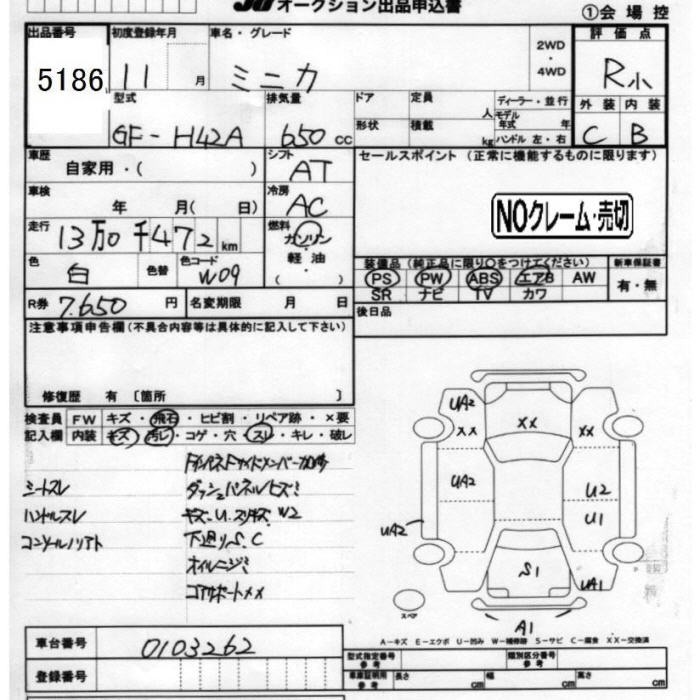 JU オークション出品申込書
①会場控
出品番号 初度登録年月 車名・グレード 2WD・4WD 評価点
5186 11 月 ミニカ R小
型式 排気量 ドア 定員 人 ディーラー・並行 外装 内装
GF-H42A 650 cc 形状 積載 kg モデル年式 年 ハンドル 左・右 C B
車歴 シフト セールスポイント (正常に機能するものに限ります)
自家用・( ) AT
車検 冷房
年 月( 日) AC NOクレーム・売切
走行 燃料
13万0千472 km ガソリン・軽油・( )
色 色替 色コード 装備品(純正品に限り○をつけてください) 新車保証書
白 W09 PS PW ABS エアB AW 有・無
SR ナビ TV カワ
R券 7.650 円 名変期限 月 日 後日品
注意事項申告欄(不具合内容等は具体的に記入して下さい)
修復歴 有 〔箇所 〕
検査員 FW キズ・飛石・ヒビ割・リペア跡・×要
記入欄 内装 キズ・汚レ・コゲ・穴・スレ・キレ・破レ
シートスレ ダッシュパネルヒズミ
ハンドルスレ キズ.U.スリキズ W2
下廻りS.C
コアサポートXX
UA2 XX XX XX
UA2 U2
UA2 U1
S1 UA1
スペア
A1
A-キズ E-エクボ U-凹み W-補修跡 S-サビ C-腐食 XX-交換済
車台番号 0103262 型式指定番号 参考 類別区分番号 参考
登録番号 車庫証明用 参考 長さ cm 幅 cm 高さ cm